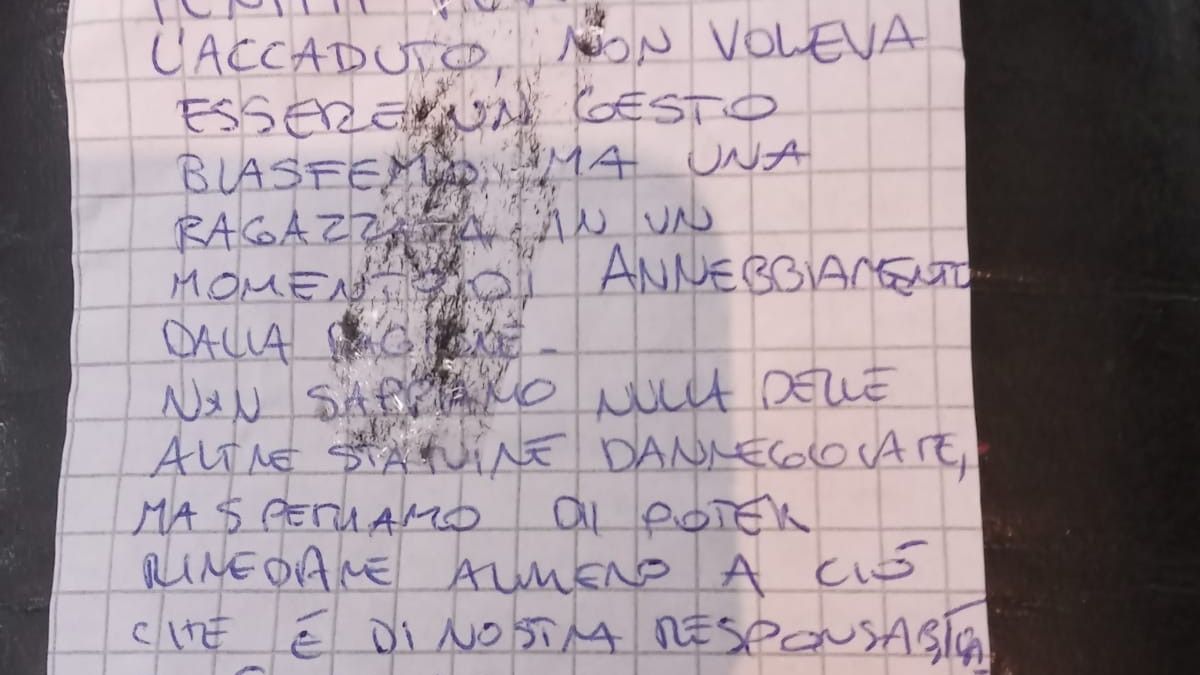 L'ACCADUTO, NON VOLEVA
ESSERE UN GESTO
BLASFEMO, MA UNA
RAGAZZATA IN UN
MOMENTO DI ANNEBBIAMENTO
DALLA RAGIONE.
NON SAPPIAMO NULLA DELLE
ALTRE STATUINE DANNEGGIATE,
MA SPERIAMO DI POTER
RIMEDIARE ALMENO A CIÒ
CHE È DI NOSTRA RESPONSABILITÀ